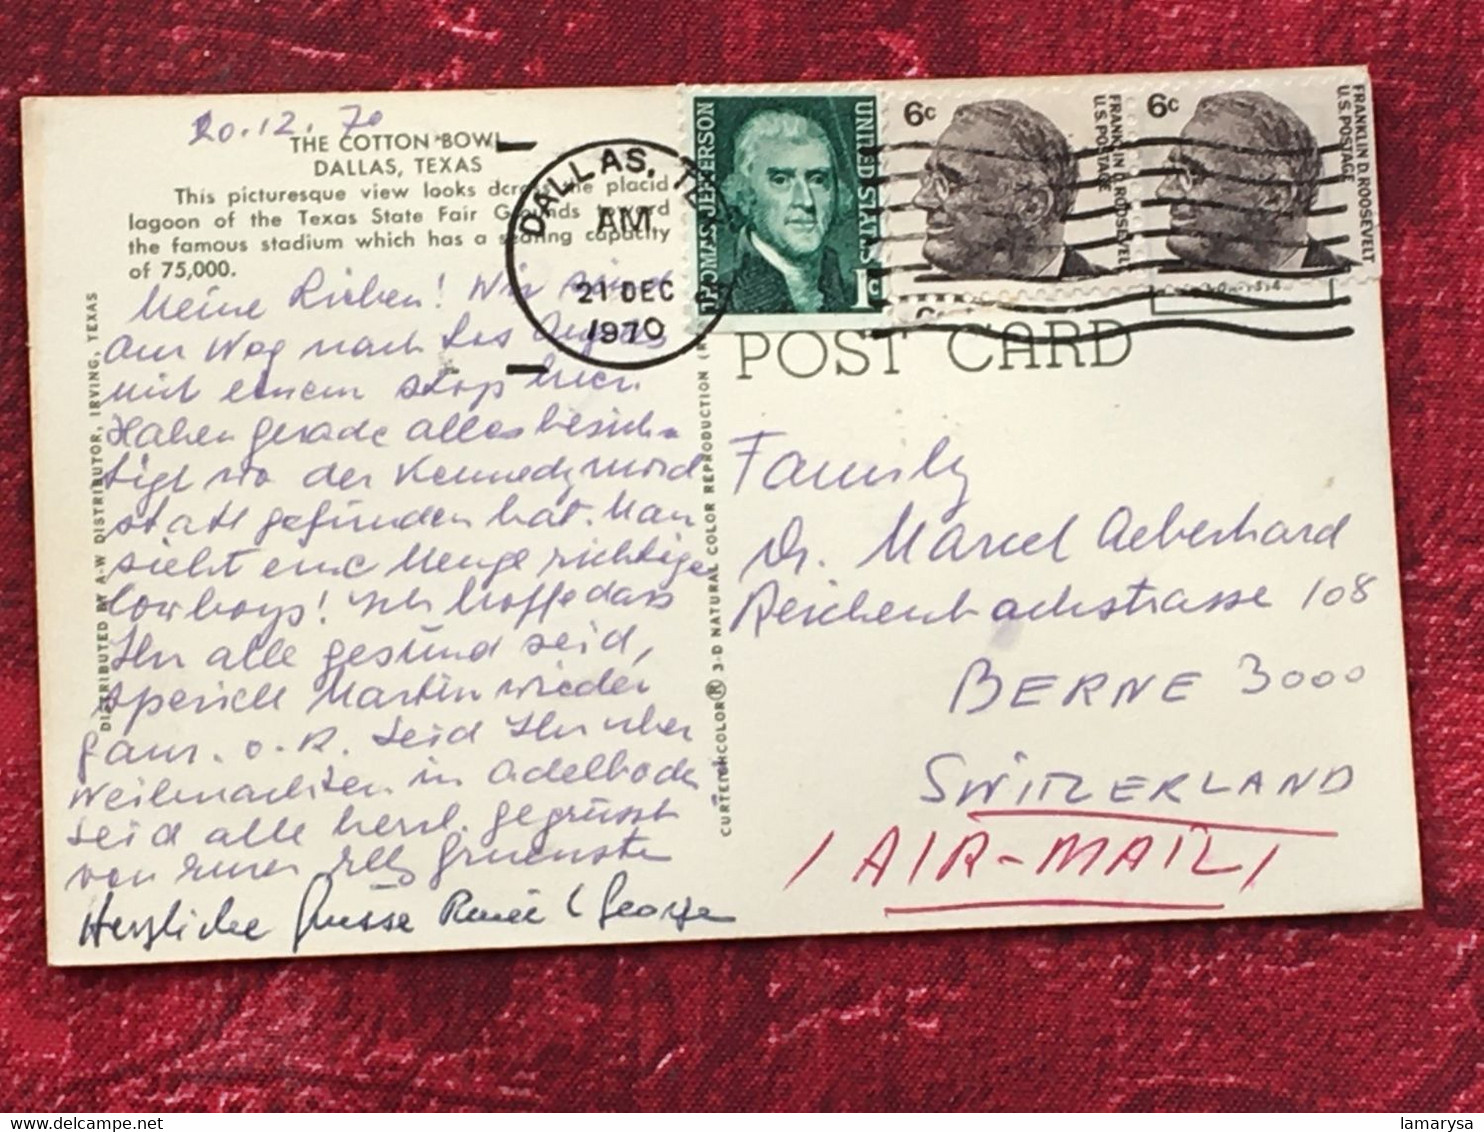 20.12.70
THE COTTON BOWL
DALLAS, TEXAS
This picturesque view looks across the placid
lagoon of the Texas State Fair Grounds toward
the famous stadium which has a seating capacity
of 75,000.
Meine Lieben! Wir sind
am Weg nach Los Angeles
mit einem Stop hier.
Haben gerade alles besich-
tigt wo der Kennedymord
statt gefunden hat. Man
sieht eine Menge richtige
Cowboys! Ich hoffe dass
Ihr alle gesund seid,
speziell Martin wieder
ganz o.K. Seid Ihr über
Weihnachten in Adelboden
Seid alle herzl. gegrüsst
von
Herzliche Grüsse Renée & George
DISTRIBUTED BY A-W DISTRIBUTOR, IRVING, TEXAS
CURTEICHCOLOR® 3-D NATURAL COLOR REPRODUCTION
DALLAS, TEX
AM
21 DEC
1970
THOMAS JEFFERSON
UNITED STATES
1c
6c
FRANKLIN D. ROOSEVELT
U.S. POSTAGE
6c
FRANKLIN D. ROOSEVELT
U.S. POSTAGE
POST CARD
Family
Dr. Marcel Aeberhard
Reichenbachstrasse 108
BERNE 3000
SWITZERLAND
/AIR-MAIL/
lamarysa